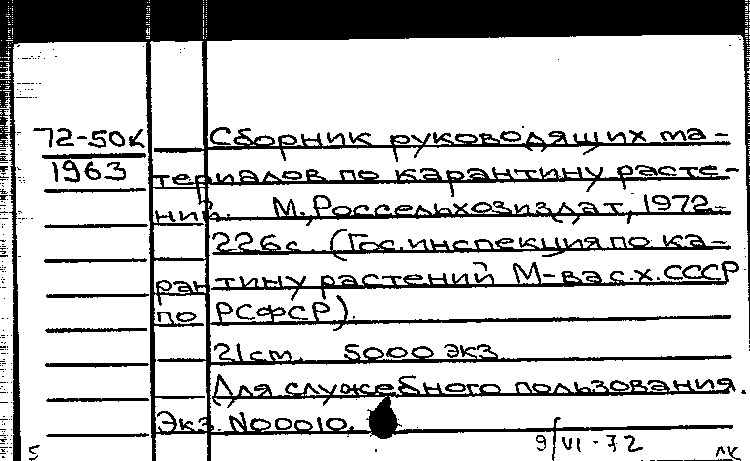 72-50к
1963
Сборник руководящих ма-
териалов по карантину расте-
ний. М., Россельхозиздат, 1972.-
226с. (Гос. инспекция по ка-
рантину растений М-ва с.х. СССР
по РСФСР).
21 см. 5000 экз
Для служебного пользования.
Экз. N00010.
9/VI-72
5
лк